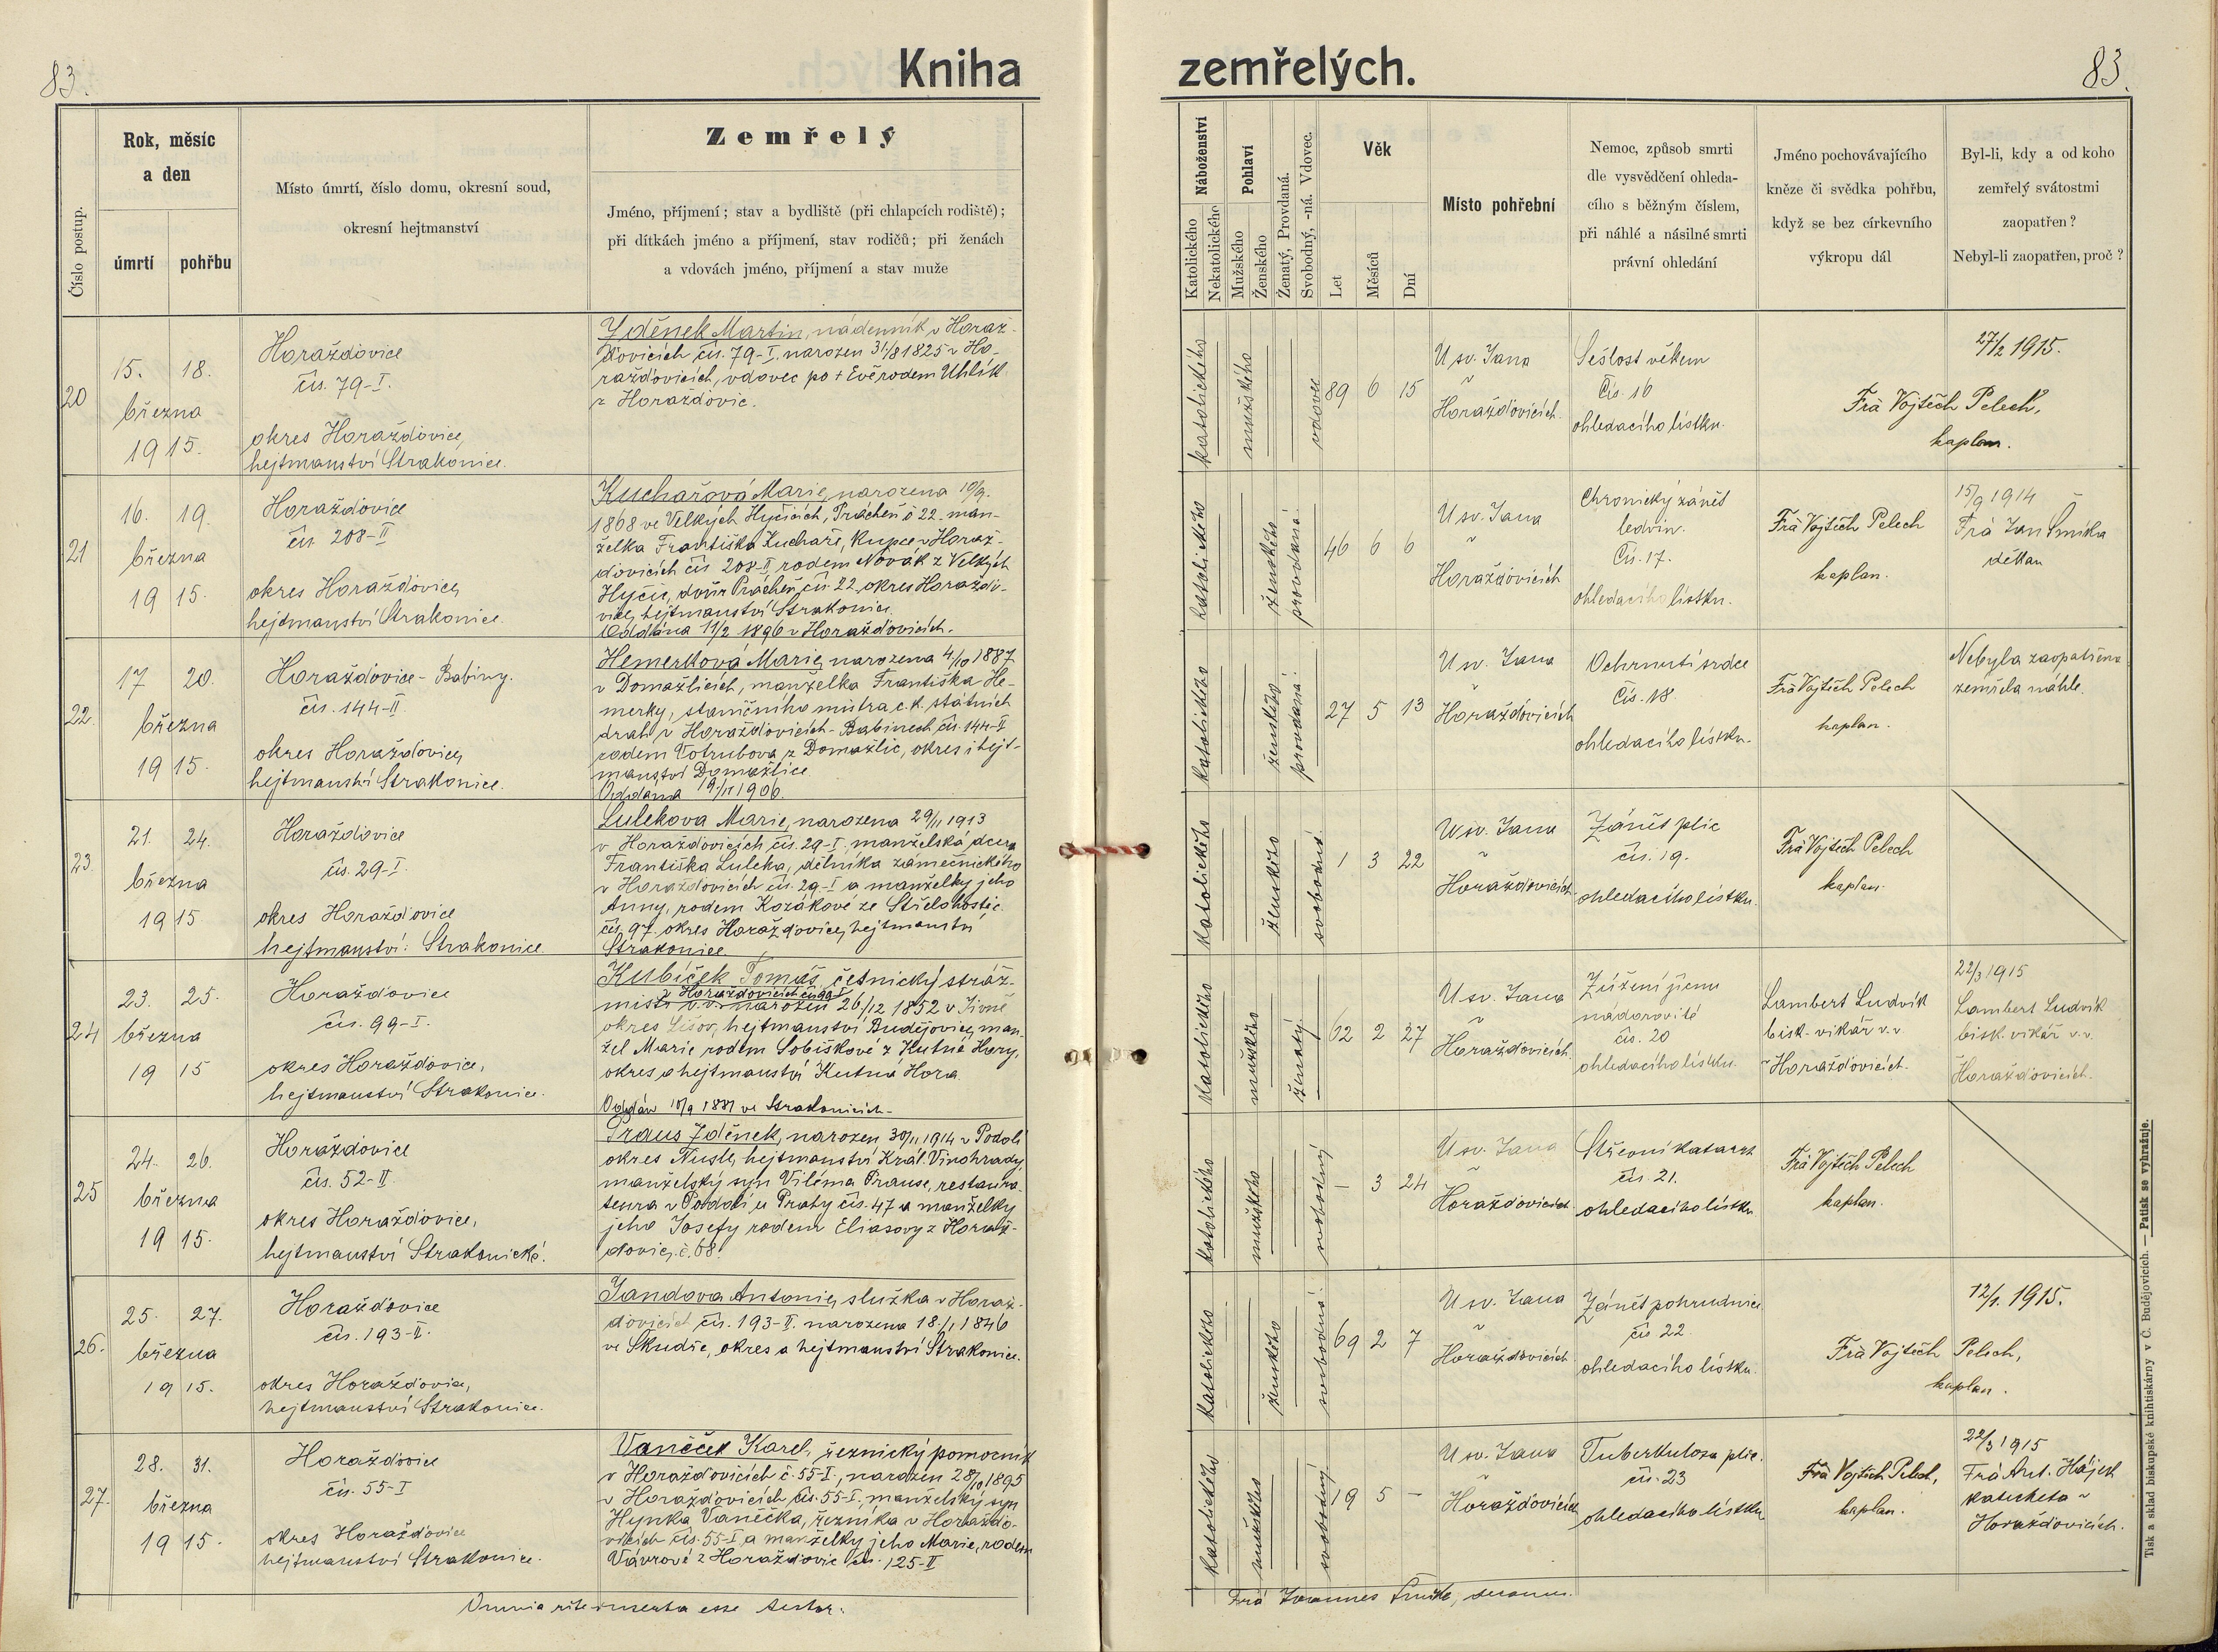 83.
Kniha
zemřelých.
83.
Číslo postup.
Rok, měsíc
a den
úmrtí
pohřbu
Místo úmrtí, číslo domu, okresní soud,
okresní hejtmanství
Zemřelý
Jméno, příjmení; stav a bydliště (při chlapcích rodiště);
při dítkách jméno a příjmení, stav rodičů; při ženách
a vdovách jméno, příjmení a stav muže
Náboženství
Katolického
Nekatolického
Pohlaví
Mužského
Ženského
Ženatý, Provdaná.
Svobodný, -ná. Vdovec.
Věk
Let
Měsíců
Dní
Místo pohřební
Nemoc, způsob smrti
dle vysvědčení ohleda-
cího s běžným číslem,
při náhlé a násilné smrti
právní ohledání
Jméno pochovávajícího
kněze či svědka pohřbu,
když se bez církevního
výkropu dál
Byl-li, kdy a od koho
zemřelý svátostmi
zaopatřen?
Nebyl-li zaopatřen, proč?
20
15. 18.
března
1915.
Horažďovice
čís. 79-I.
okres Horažďovice,
hejtmanství Strakonice.
Zděnek Martin, nádenník v Horaž-
ďovicích čís. 79-I. narozen 31/8 1825 v Ho-
ražďovicích, vdovec po + Evě rodem Uhlík
z Horažďovic.
katolického
mužského
vdovec
89 6 15
U sv. Jana
v
Horažďovicích.
Sešlost věkem
Čís. 16
ohledacího lístku.
27/2 1915.
Frà Vojtěch Pelech,
kaplan.
21
16. 19.
března
1915.
Horažďovice
čís. 208-II
okres Horažďovice,
hejtmanství Strakonice.
Kuchařová Marie, narozena 10/9.
1868 ve Velkých Hyčicích, Prácheň č 22. man-
želka Františka Kuchaře, kupce v Horaž-
ďovicích čís 208-II, rodem Novák z Velkých
Hyčic, dvůr Prácheň čís. 22. okres Horažďo-
vice, hejtmanství Strakonice.
Oddána 11/2 1896 v Horažďovicích.
katolického
ženského
provdaná.
46 6 6
U sv. Jana
v
Horažďovicích
Chronický zánět
ledvin.
Čís. 17.
ohledacího lístku.
Frà Vojtěch Pelech
kaplan.
15/9 1914
Frà Jan
děkan
22.
17 20.
března
1915.
Horažďovice - Babiny.
čís. 144-II.
okres Horažďovice,
hejtmanství Strakonice.
Hemerková Marie, narozena 4/10 1887
v Domažlicích, manželka Františka He-
merky, staničního mistra c. k. státních
drah v Horažďovicích - Babinech čís. 144-II
rodem Votrubova z Domažlic, okres i hejt-
manství Domažlice
Oddána 19/11 1906.
katolického
ženského
provdaná.
27 5 13
U sv. Jana
v
Horažďovicích
Ochrnutí srdce
Čís. 18.
ohledacího lístku.
Frà Vojtěch Pelech
kaplan.
Nebyla zaopatřena
zemřela náhle.
23.
21. 24.
března
1915.
Horažďovice
čís. 29-I.
okres Horažďovice
hejtmanství: Strakonice
Lulekova Marie, narozena 29/11 1913
v Horažďovicích čís. 29-I. manželská dcera
Františka Luleka, dělníka zámečnického
v Horažďovicích čís. 29-I a manželky jeho
Anny, rodem Kozákové ze Střelohostic
čís. 97. okres Horažďovice, hejtmanství
Strakonice
katolického
ženského
svobodná.
1 3 22
U sv. Jana
v
Horažďovicích
Zánět plic
čís. 19.
ohledacího lístku.
Frà Vojtěch Pelech
kaplan.
24
23. 25.
března
1915
Horažďovice
čís. 99-I.
okres Horažďovice,
hejtmanství Strakonice.
Kubíček Tomáš, četnický stráž-
v Horažďovicích čís 99 I
mistr v. v. narozen 26/12 1852 v Jivně
okres Lišov, hejtmanství Budějovice, man-
žel Marie rodem Sobiškové z Kutné Hory,
okres a hejtmanství Kutna Hora.
Oddán 18/9 1881 ve Strakonicích.
katolického
mužského
ženatý.
62 2 27
U sv. Jana
v
Horažďovicích.
Zúžení jícnu
nádorovité
čís. 20
ohledacího lístku.
Lambert Ludvík
bisk. vikář v. v.
v Horažďovicích.
22/3 1915
Lambert Ludvík
bisk. vikář v. v.
Horažďovicích.
25
24. 26.
března
1915.
Horažďovice
čís. 52-II.
okres Horažďovice,
hejtmanství Strakonické.
Praus Zděnek, narozen 30/11 1914 v Podolí
okres Nusle, hejtmanství Král. Vinohrady,
manželský syn Viléma Prause, restaura-
teura v Podolí u Prahy čís. 47 a manželky
jeho Josefy rodem Eliasovy z Horaž-
ďovic, č. 68.
katolického
mužského
svobodný
— 3 24
U sv. Jana
v
Horažďovicích
Střevní katarrh
čís. 21.
ohledacího lístku
Frà Vojtěch Pelech
kaplan.
26.
25. 27.
března
1915.
Horažďovice
čís. 193-II.
okres Horažďovice,
hejtmanství Strakonice.
Jandova Antonie, služka v Horaž-
ďovicích čís. 193-II. narozena 18./1 1846
ve Skudře, okres a hejtmanství Strakonice.
katolického
ženského
svobodná.
69 2 7
U sv. Jana
v
Horažďovicích
Zánět pohrudnice
čís 22
ohledacího lístku.
12/1. 1915.
Frà Vojtěch Pelech,
kaplan.
27.
28. 31.
března
1915.
Horažďovice
čís. 55-I
okres Horažďovice
hejtmanství Strakonice.
Vaněček Karel, řeznický pomocník
v Horažďovicích č. 55-I., narozen 28/10 1895
v Horažďovicích čís. 55-I, manželský syn
Hynka Vanečka, řezníka v Horažďo-
vicích čís. 55-I, a manželky jeho Marie, rodem
Vávrové z Horažďovic čís. 125-II
katolického
mužského
svobodný.
19 5 —
U sv. Jana
v
Horažďovicích
Tuberkulosa plic.
čís. 23
ohledacího lístku
Frà Vojtěch Pelech,
kaplan.
22/3 1915
Frà Ant. Hájek
katecheta v
Horažďovicích.
Omnia rite inserta esse testor:
Frà Joannes decanus.
Tisk a sklad biskupské knihtiskárny v Č. Budějovicích. — Patisk se vyhražuje.